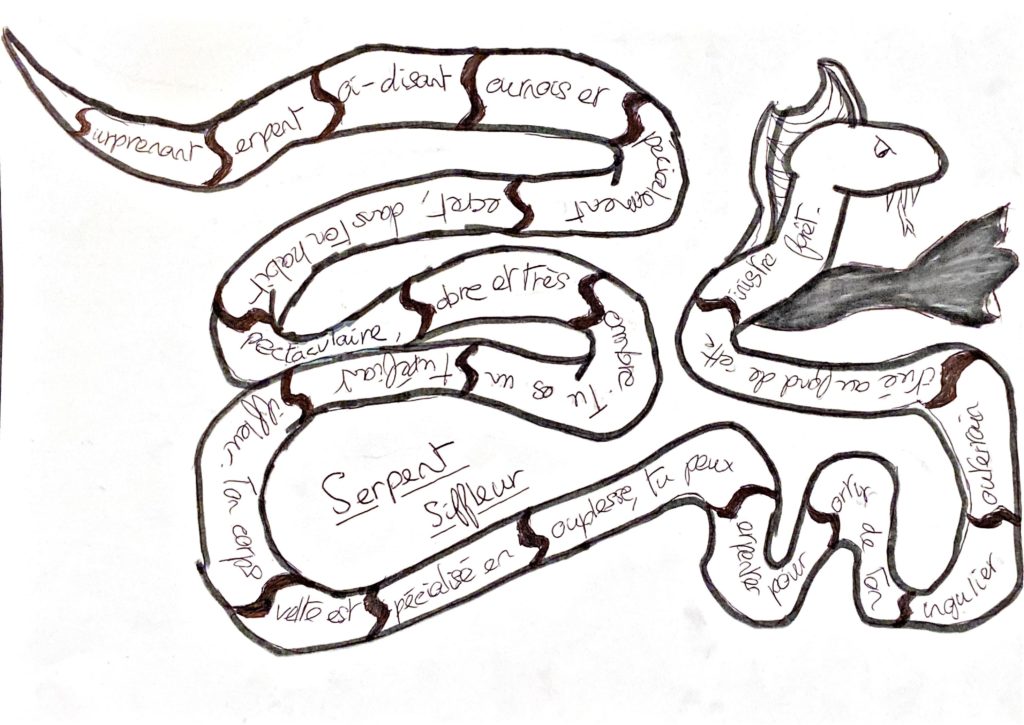 Surprenant
Serpent
Soi-disant
Sournois et
Spécialement
Secret, dans ton habit
Spectaculaire,
Sobre et très
Sombre. Tu es un
Stupéfiant
Siffleur. Ton corps
Svelte est
Spécialisé en
Souplesses tu peux
Serpenter pour
Sortir de ton
Singulier
Souterrain
Situé au fond de cette
Sinistre forêt.
Serpent
Siffleur